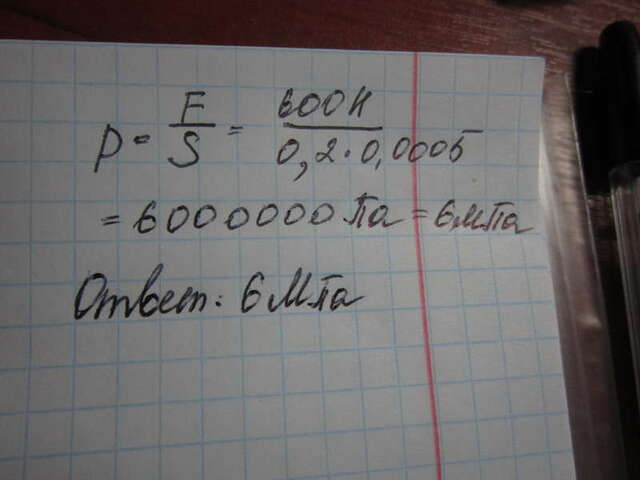 p = F/S = 600Н / 0,2·0,0005
= 6000000 Па = 6мПа
Ответ: 6 МПа